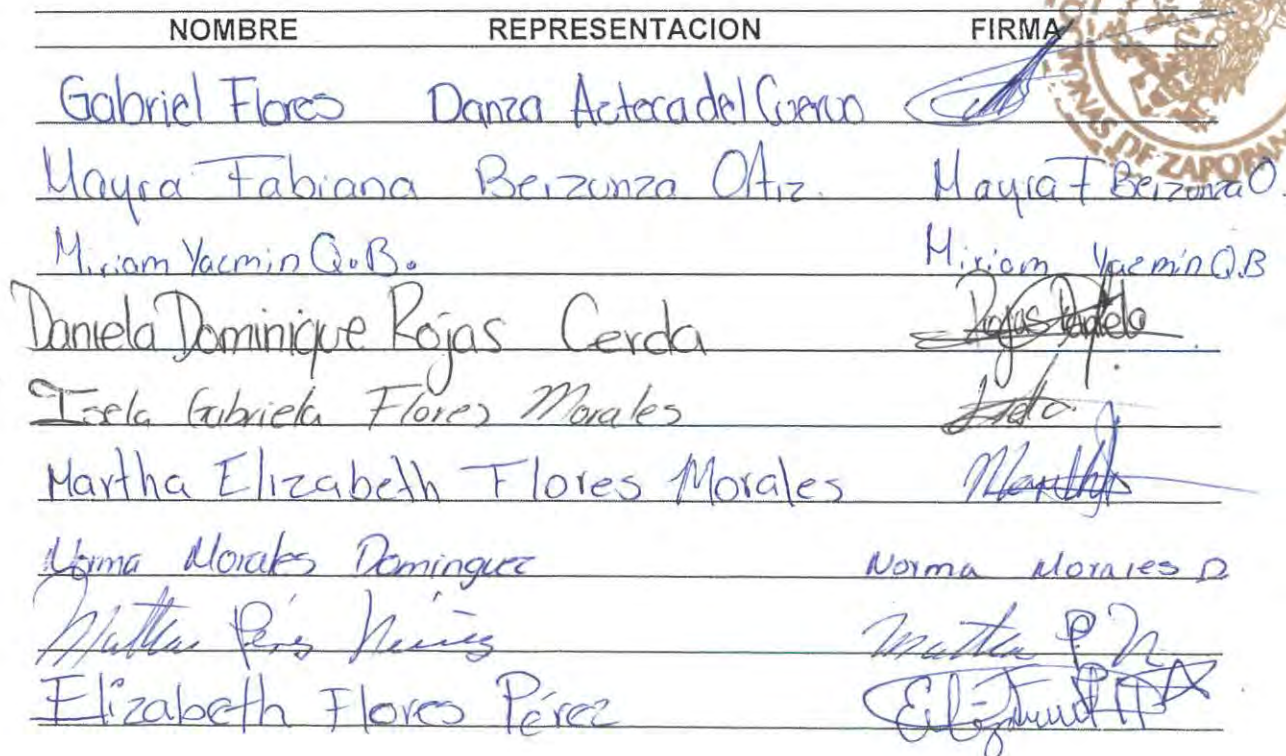 NOMBRE REPRESENTACION FIRMA
ONAS DE ZAPOPAN
Gabriel Flores Danza Azteca del Cuervo
Mayra Fabiana Berzunza Ortiz. Mayra F Berzunza O.
Miriam Yacmin Q.B. Miriam Yacmin Q.B
Daniela Dominique Rojas Cerda Rojas Daniela
Isela Gabriela Flores Morales
Martha Elizabeth Flores Morales Martha
Norma Morales Dominguez Norma Morales D
Martha Pérez Núñez Martha P. N.
Elizabeth Flores Pérez